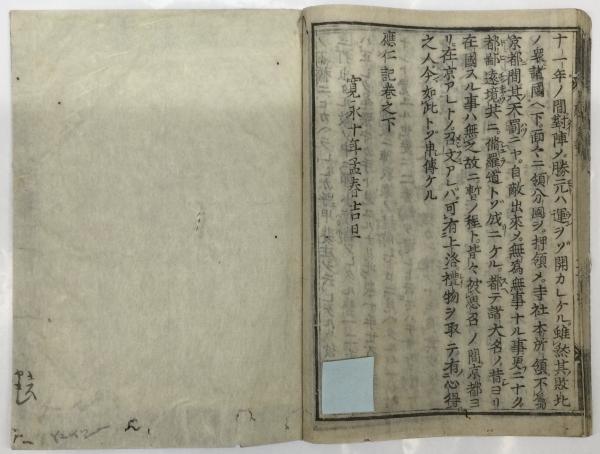 十一年ノ間對陣メ。勝元ハ運ヲゾ開カレケル。雖然其敗北
ノ衆諸國ヘ下。面々ニ領分國ヲ。押領メ。寺社本所領不
京都間其天罰ニヤ。自敵出來メ。無為無事ナル事更ニナク
都鄙遠境共ニ。脩羅道トゾ成ニケル。都テ諸大名ノ昔ヨリ
在國スル事ハ無之故ニ。暫ノ程ト。皆々被思召ノ間京都ヨ
リ在京アレトノ召文アレバ。可有上洛禮物ヲ取テ有心得
之人今如此トゾ申傳ケル
應仁記卷之下
寛永十年孟春吉旦